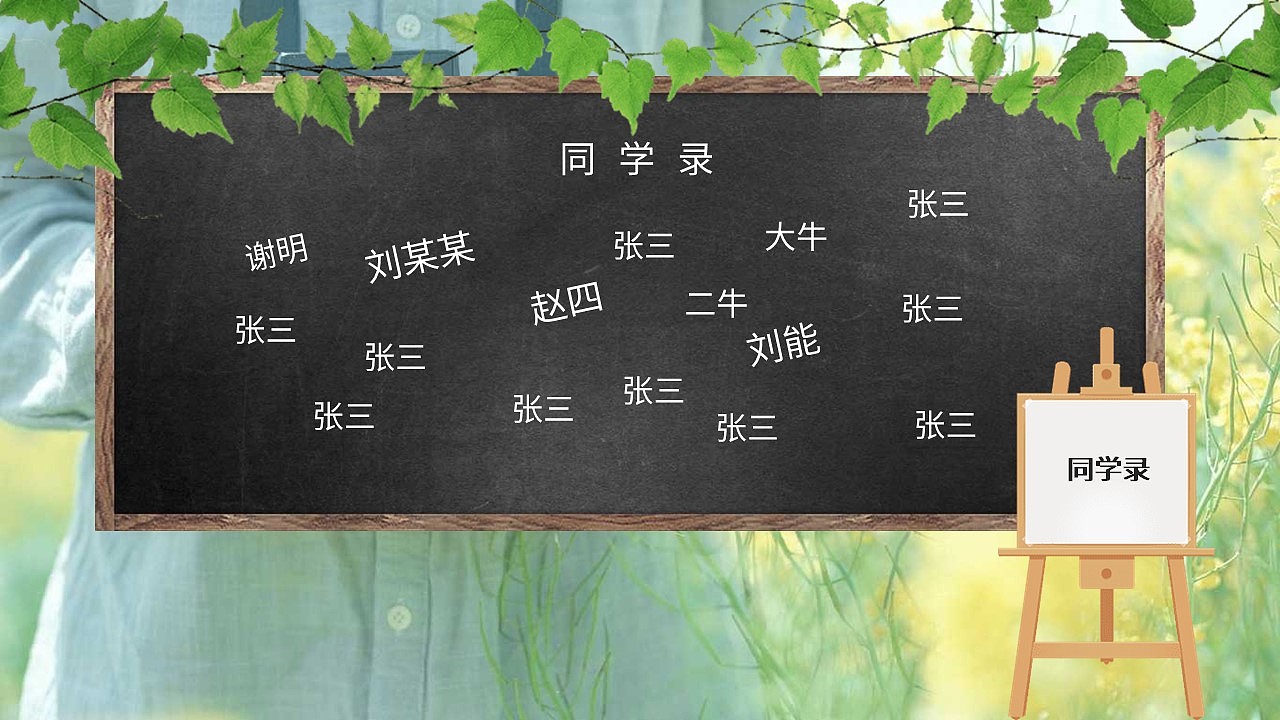 同学录
张三
谢明
刘某某
张三
大牛
赵四
二牛
张三
张三
张三
刘能
张三
张三
张三
张三
张三
同学录